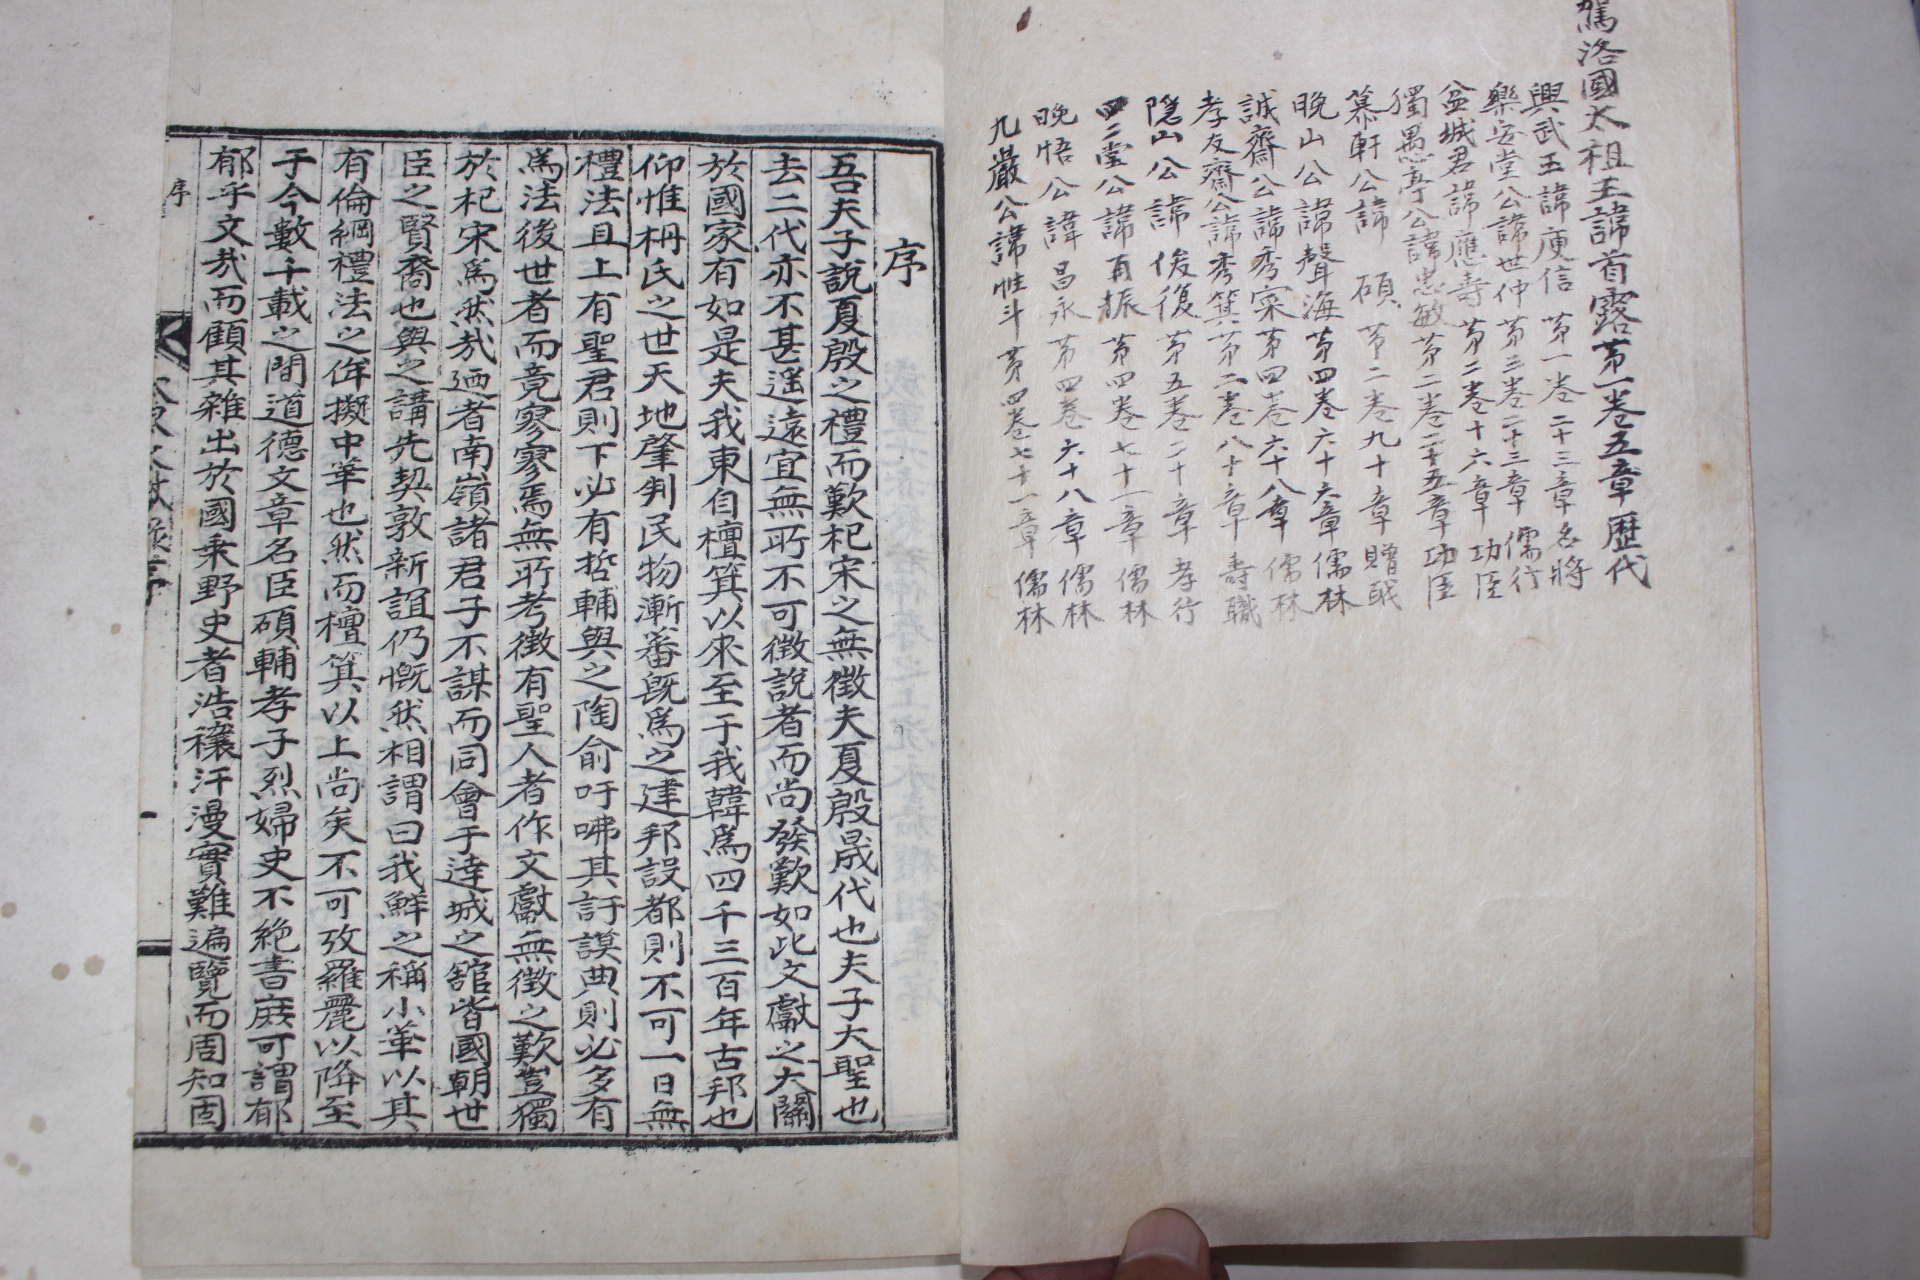 駕洛國太祖王諱首露苐一卷五章歷代
興武王諱庾信苐一卷二十三章名將
樂安堂公諱世仲苐三卷二十三章儒行
盆城君諱應壽苐二卷十六章功臣
獨愚亭公諱忠敏苐二卷二十五章功臣
慕軒公諱碩苐二卷九十章贈職
晚山公諱聲海苐四卷六十六章儒林
誠齋公諱秀寀苐四卷六十八章儒林
孝友齋公諱秀箕苐二卷八十章壽職
隱山公諱俊復苐五卷二十章孝行
四二堂公諱再振苐四卷七十一章儒林
晚悟公諱昌永苐四卷六十八章儒林
九巖公諱性斗苐四卷七十一章儒林
序
吾夫子說夏殷之禮而歎杞宋之無徵夫夏殷晟代也夫子大聖也
去二代亦不甚遥遠宜無所不可徵說者而尚發歎如此文獻之大關
於國家有如是夫我東自檀箕以來至于我韓爲四千三百年古邦也
仰惟栴氏之世天地肇判民物漸蕃旣爲之建邦設都則不可一日無
禮法且上有聖君則下必有哲輔與之陶俞吁咈其訏謨典則必多有
爲法後世者而竟寥寥焉無所考徵有聖人者作文獻無徵之歎豈獨
於杞宋爲然㢤廼者南嶺諸君子不謀而同會于達城之舘皆國朝世
臣之賢裔也與之講先契敦新誼仍慨然相謂曰我鮮之稱小華以其
有倫綱禮法之侔擬中華也然而檀箕以上尚矣不可攷羅麗以降至
于今數千載之間道德文章名臣碩輔孝子烈婦史不絶書庶可謂郁
郁乎文㢤而顧其雜出於國乘野史者浩穰汗漫實難遍覽而周知固
序